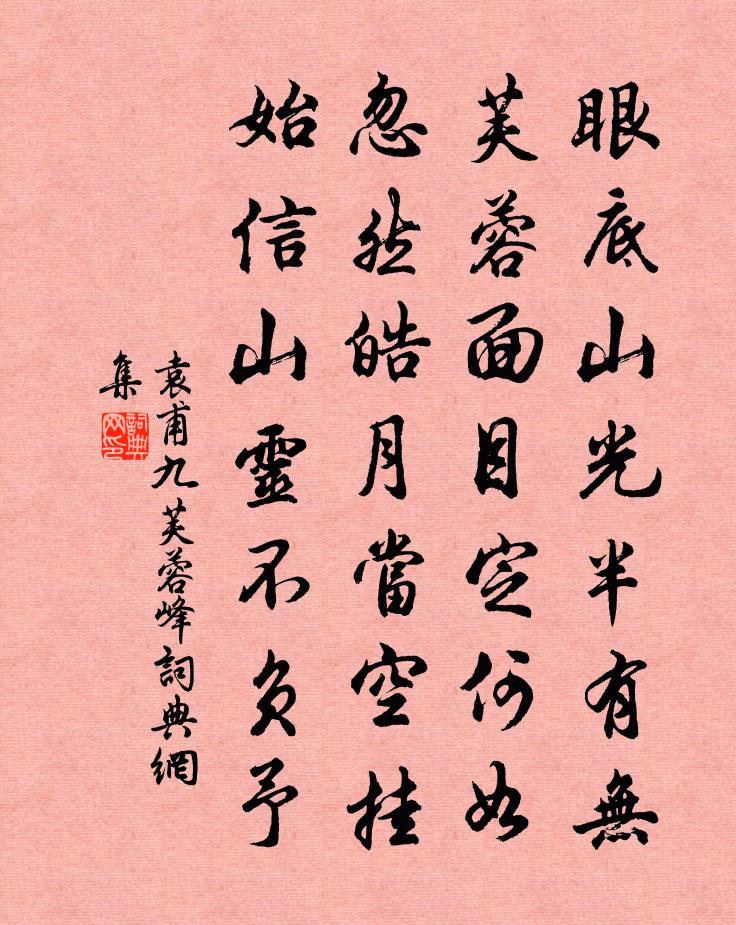 眼底山光半有無
芙蓉面目定何如
忽然皓月當空挂
始信山靈不負予
袁甫九芙蓉峰詞典網
集
詞典
网印